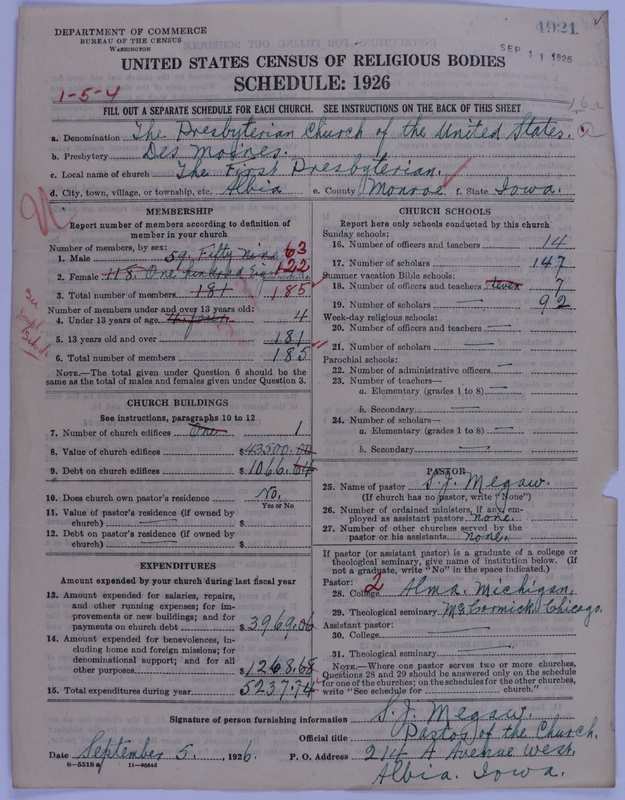 DEPARTMENT OF COMMERCE
BUREAU OF THE CENSUS
WASHINGTON
4921
SEP 11 1926
UNITED STATES CENSUS OF RELIGIOUS BODIES
SCHEDULE: 1926
1-5-4
FILL OUT A SEPARATE SCHEDULE FOR EACH CHURCH. SEE INSTRUCTIONS ON THE BACK OF THIS SHEET
a. Denomination The Presbyterian Church of the United States.
b. Presbytery Des Moines.
c. Local name of church The First Presbyterian.
d. City, town, village, or township, etc. Albia e. County Monroe f. State Iowa.
MEMBERSHIP
Report number of members according to definition of
member in your church
Number of members, by sex:
1. Male 59. Fifty Nine 63
2. Female 118. One hundred Eighteen 122
3. Total number of members 181 185
Number of members under and over 13 years old:
4. Under 13 years of age 4
5. 13 years old and over 181
6. Total number of members 185
NOTE.—The total given under Question 6 should be the
same as the total of males and females given under Question 3.
CHURCH BUILDINGS
See instructions, paragraphs 10 to 12
7. Number of church edifices One 1
8. Value of church edifices $43500.00
9. Debt on church edifices $1066.64
10. Does church own pastor's residence No.
Yes or No
11. Value of pastor's residence (if owned by
church) $
12. Debt on pastor's residence (if owned by
church) $
EXPENDITURES
Amount expended by your church during last fiscal year
13. Amount expended for salaries, repairs,
and other running expenses; for im-
provements or new buildings; and for
payments on church debt $3969.06
14. Amount expended for benevolences, in-
cluding home and foreign missions; for
denominational support; and for all
other purposes $1268.68
15. Total expenditures during year $5237.74
CHURCH SCHOOLS
Report here only schools conducted by this church
Sunday schools:
16. Number of officers and teachers 14
17. Number of scholars 147
Summer vacation Bible schools:
18. Number of officers and teachers Seven 7
19. Number of scholars 92
Week-day religious schools:
20. Number of officers and teachers
21. Number of scholars
Parochial schools:
22. Number of administrative officers
23. Number of teachers—
a. Elementary (grades 1 to 8)
b. Secondary
24. Number of scholars—
a. Elementary (grades 1 to 8)
b. Secondary
PASTOR
25. Name of pastor S. J. Megaw.
(If church has no pastor, write "None")
26. Number of ordained ministers, if any, em-
ployed as assistant pastors none.
27. Number of other churches served by the
pastor or his assistants none.
If pastor (or assistant pastor) is a graduate of a college or
theological seminary, give name of institution below. (If
not a graduate, write "No" in the space indicated.)
Pastor: 2
28. College Alma. Michigan.
29. Theological seminary McCormick. Chicago.
Assistant pastor:
30. College
31. Theological seminary
NOTE.—Where one pastor serves two or more churches,
Questions 28 and 29 should be answered only on the schedule
for one of the churches; on the schedules for the other churches,
write "See schedule for church."
Signature of person furnishing information S. J. Megaw.
Official title Pastor of the Church.
Date September 5, 1926. P. O. Address 214 A Avenue West.
Albia. Iowa.
8-5518a